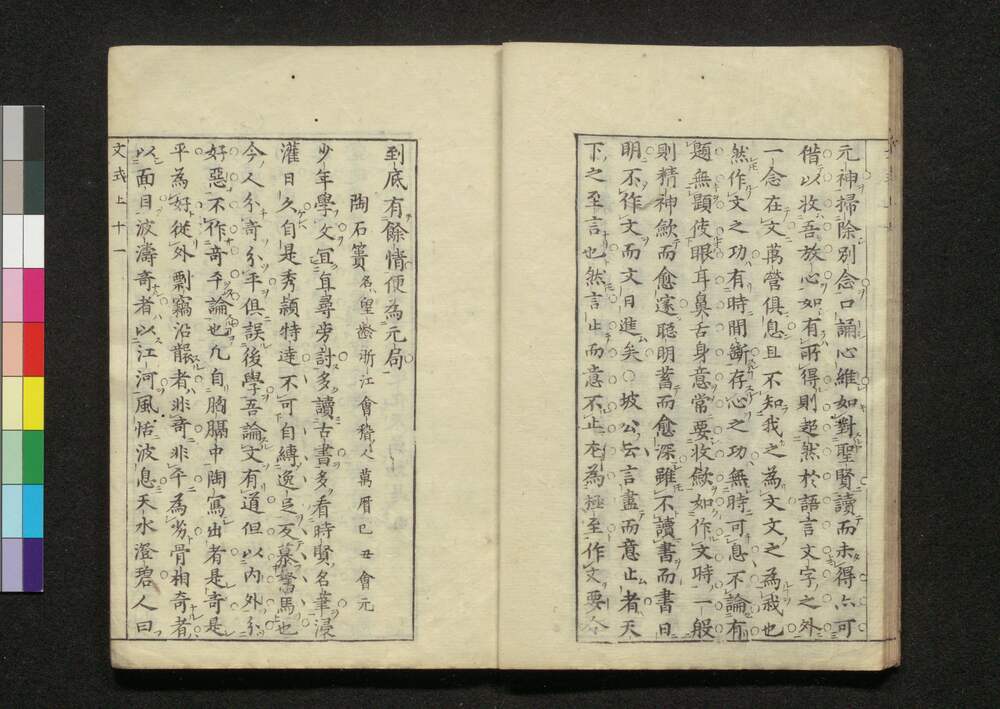 元神掃除別念口誦心維如對聖賢讀而未得亦可
借以收吾放心如有所得則超然於語言文字之外
一念在文萬營俱息且不知我之為文文之為我也
然作文之功有時間斷存心之功無時可息不論有
題無題彼眼耳鼻舌身意常要收歛如作文時一般
則精神歛而愈邃聰明蓄而愈深雖不讀書而書日
明不作文而文日進矣○坡公云言盡而意止者天
下之至言也然言止而意不止尤為極至作文要令
到底有餘情便為元局
陶石簣 名望齡浙江會稽人萬曆己丑會元
少年學文宜旁尋旁討多讀古書多看時賢名筆浸
灌日久自是秀穎特達不可自縛逸足反慕駑馬也
今人分奇分平俱誤後學吾論文有道但以內外分
好惡不作奇平論也凡自胸膈中陶寫出者是奇是
平為好從外剽竊沿襲者非奇非平為劣骨相奇者
以面目波濤奇者以江河風恬波息天水澄碧人曰
文式 上 十一